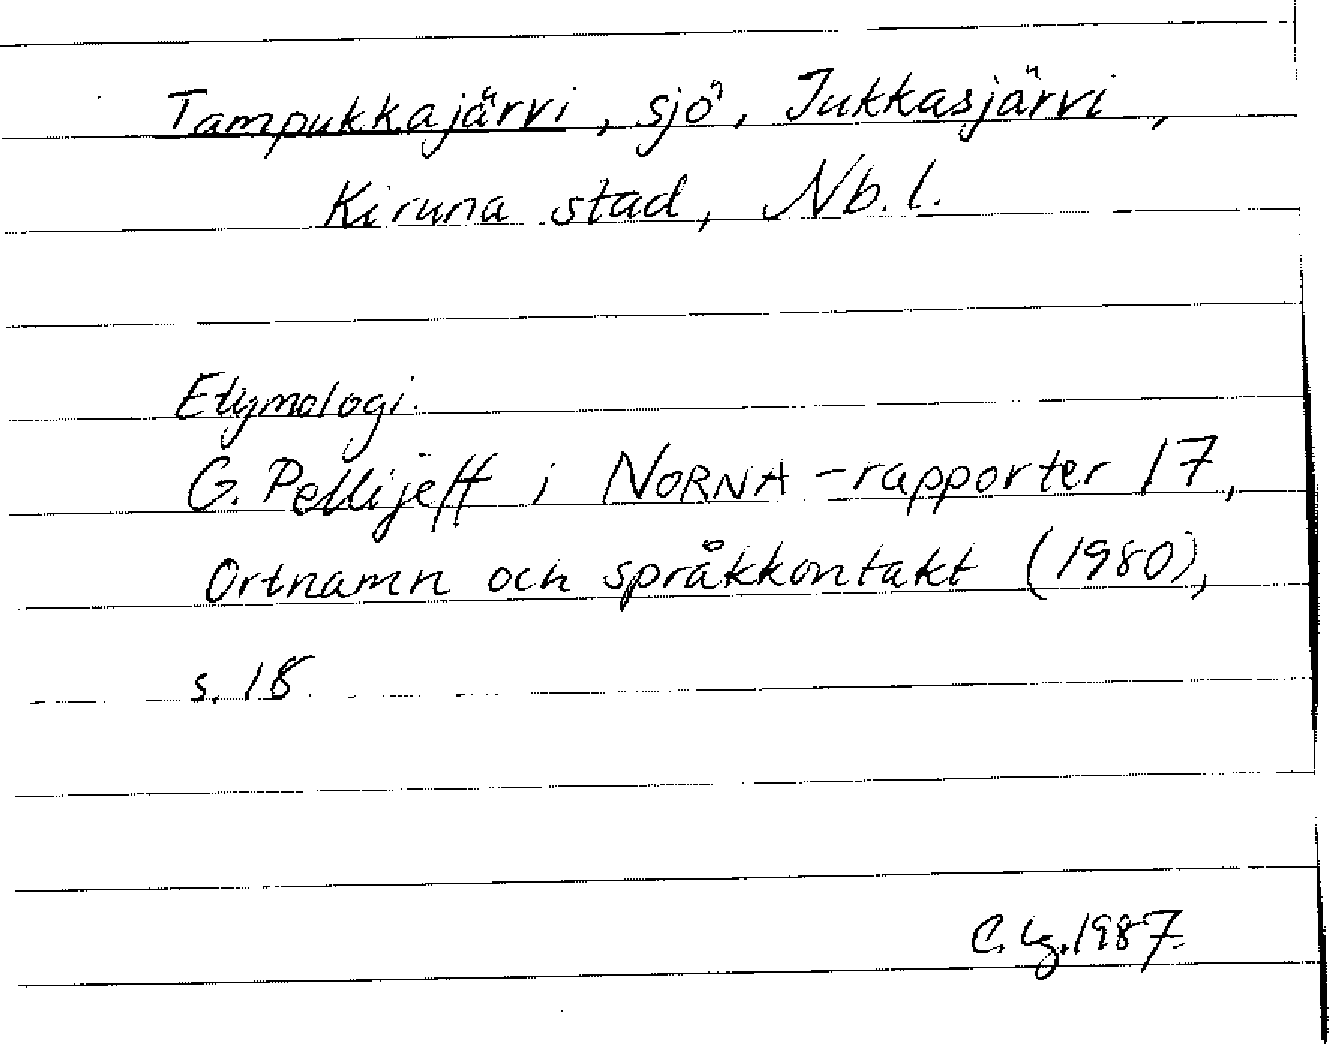 Tampukkajärvi, sjö, Jukkasjärvi,
Kiruna stad, Nb. l.
Etymologi.
G. Pellijeff i NORNA-rapporter 17,
Ortnamn och språkkontakt (1980),
s. 18.
C. Lg. 1987.